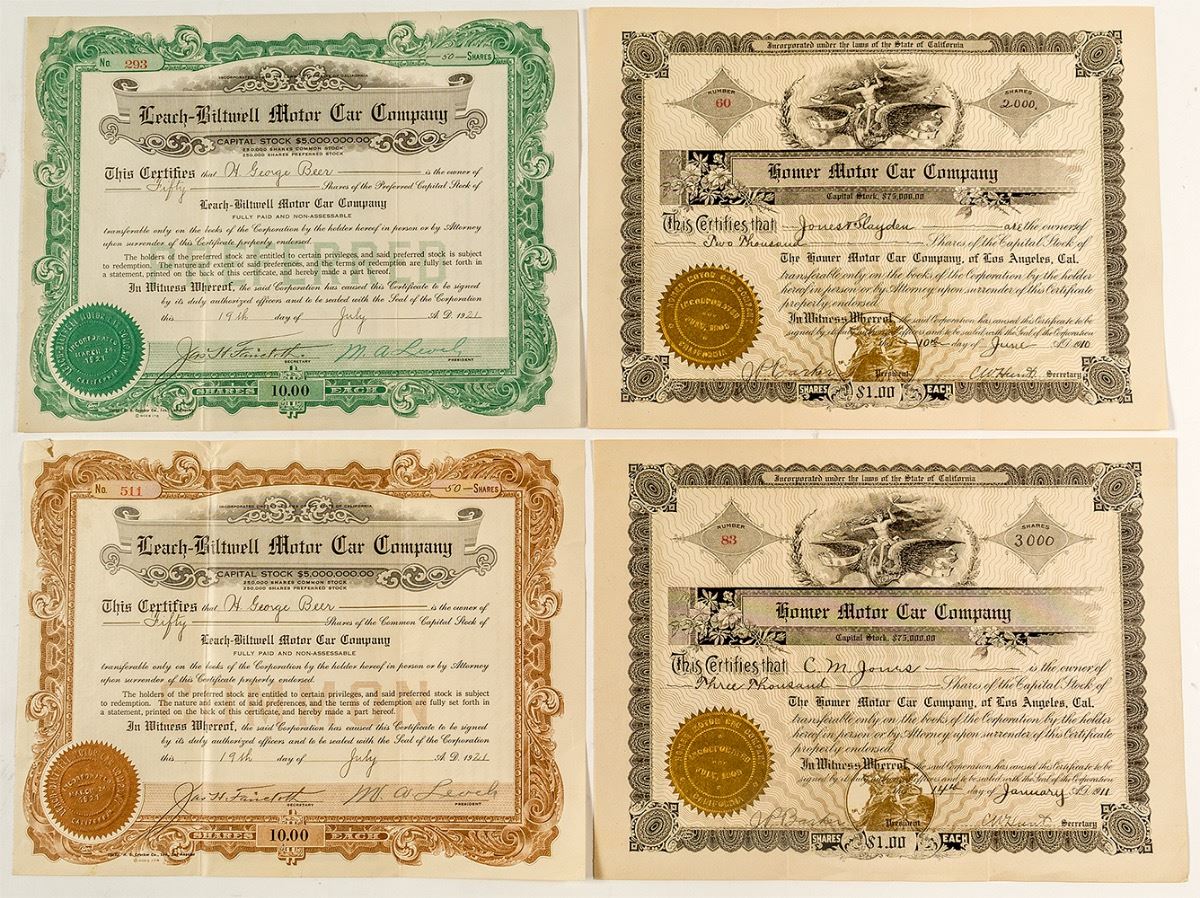 No. 293
50 - SHARES
INCORPORATED UNDER THE LAWS OF THE STATE OF CALIFORNIA
Leach-Biltwell Motor Car Company
CAPITAL STOCK $5,000,000.00
250,000 SHARES COMMON STOCK
250,000 SHARES PREFERRED STOCK
This Certifies that H George Beer is the owner of
Fifty Shares of the Preferred Capital Stock of
Leach-Biltwell Motor Car Company
FULLY PAID AND NON-ASSESSABLE
transferable only on the books of the Corporation by the holder hereof in person or by Attorney
upon surrender of this Certificate properly endorsed.
The holders of the preferred stock are entitled to certain privileges, and said preferred stock is subject
to redemption. The nature and extent of said preferences, and the terms of redemption are fully set forth in
a statement, printed on the back of this certificate, and hereby made a part hereof.
In Witness Whereof, the said Corporation has caused this Certificate to be signed
by its duly authorized officers and to be sealed with the Seal of the Corporation
this 19th day of July A.D. 1921
INCORPORATED
MARCH 24
1921
CALIFORNIA
SECRETARY
PRESIDENT
SHARES 10.00 EACH
Incorporated under the laws of the State of California
NUMBER
60
SHARES
2000.
Homer Motor Car Company
Capital Stock, $75,000.00
This Certifies that Jones & Slayden are the owner of
Two Thousand Shares of the Capital Stock of
The Homer Motor Car Company, of Los Angeles, Cal.
transferable only on the books of the Corporation by the holder
hereof in person or by Attorney upon surrender of this Certificate
properly endorsed.
In Witness Whereof, the said Corporation has caused this Certificate to be
signed by its duly authorized officers and to be sealed with the Seal of the Corporation
this 10th day of June A.D. 1910
HOMER MOTOR CAR COMPANY
INCORPORATED
CALIFORNIA
President
C W Hunt Secretary
SHARES $1.00 EACH
No. 511
50 - SHARES
INCORPORATED UNDER THE LAWS OF THE STATE OF CALIFORNIA
Leach-Biltwell Motor Car Company
CAPITAL STOCK $5,000,000.00
250,000 SHARES COMMON STOCK
250,000 SHARES PREFERRED STOCK
This Certifies that H George Beer is the owner of
Fifty Shares of the Common Capital Stock of
Leach-Biltwell Motor Car Company
FULLY PAID AND NON-ASSESSABLE
transferable only on the books of the Corporation by the holder hereof in person or by Attorney
upon surrender of this Certificate properly endorsed.
The holders of the preferred stock are entitled to certain privileges, and said preferred stock is subject
to redemption. The nature and extent of said preferences, and the terms of redemption are fully set forth in
a statement, printed on the back of this certificate, and hereby made a part hereof.
In Witness Whereof, the said Corporation has caused this Certificate to be signed
by its duly authorized officers and to be sealed with the Seal of the Corporation
this 19th day of July A.D. 1921
INCORPORATED
MARCH 24
1921
CALIFORNIA
SECRETARY
PRESIDENT
SHARES 10.00 EACH
Incorporated under the laws of the State of California
NUMBER
83
SHARES
3000
Homer Motor Car Company
Capital Stock, $75,000.00
This Certifies that C. M. Jones is the owner of
Three Thousand Shares of the Capital Stock of
The Homer Motor Car Company, of Los Angeles, Cal.
transferable only on the books of the Corporation by the holder
hereof in person or by Attorney upon surrender of this Certificate
properly endorsed.
In Witness Whereof, the said Corporation has caused this Certificate to be
signed by its duly authorized officers and to be sealed with the Seal of the Corporation
this 14th day of January A.D. 1911
HOMER MOTOR CAR COMPANY
INCORPORATED
CALIFORNIA
President
C W Hunt Secretary
SHARES $1.00 EACH